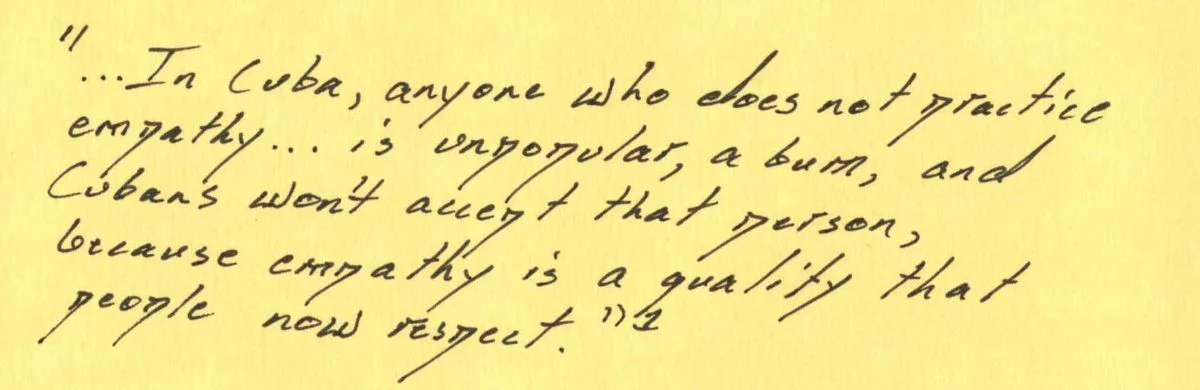 "...In Cuba, anyone who does not practice
empathy... is unpopular, a bum, and
Cubans won't accept that person,
because empathy is a quality that
people now respect."1